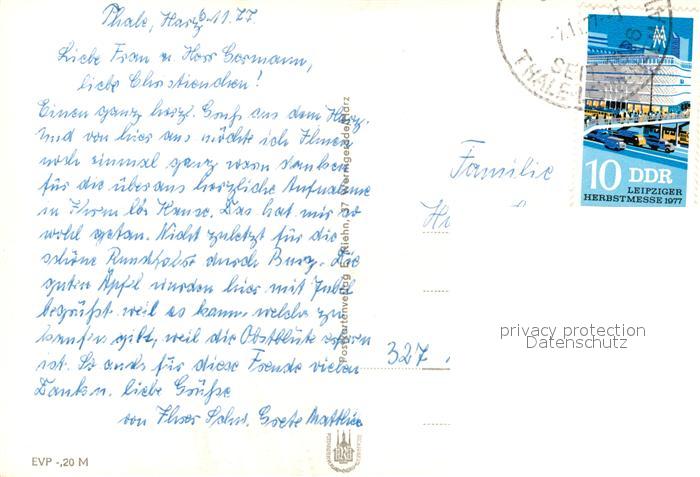 Thale, Harz 6.11.77
Liebe Frau u. Herr Germann,
liebe Christienchen!
Einen ganz herzl. Gruß aus dem Harz.
Und von hier aus möchte ich Ihnen
noch einmal ganz warm danken
für die überaus herzliche Aufnahme
in Ihrem lb. Hause. Das hat mir so
wohl getan. Nicht zuletzt für die
schöne Rundfahrt durch Burg. Die
guten Äpfel wurden hier mit Jubel
begrüßt, weil es kaum welche zu
kaufen gibt, weil die Obstblüte erfroren
ist. So auch für diese Freude vielen
Dank u. liebe Grüße
von Ihrer Schw. Grete Matthies
EVP -,20 M
Postkartenverlag E. Riehn, 37 Wernigerode/Harz
Familie
327
10 DDR
LEIPZIGER
HERBSTMESSE 1977
THALE
privacy protection
Datenschutz